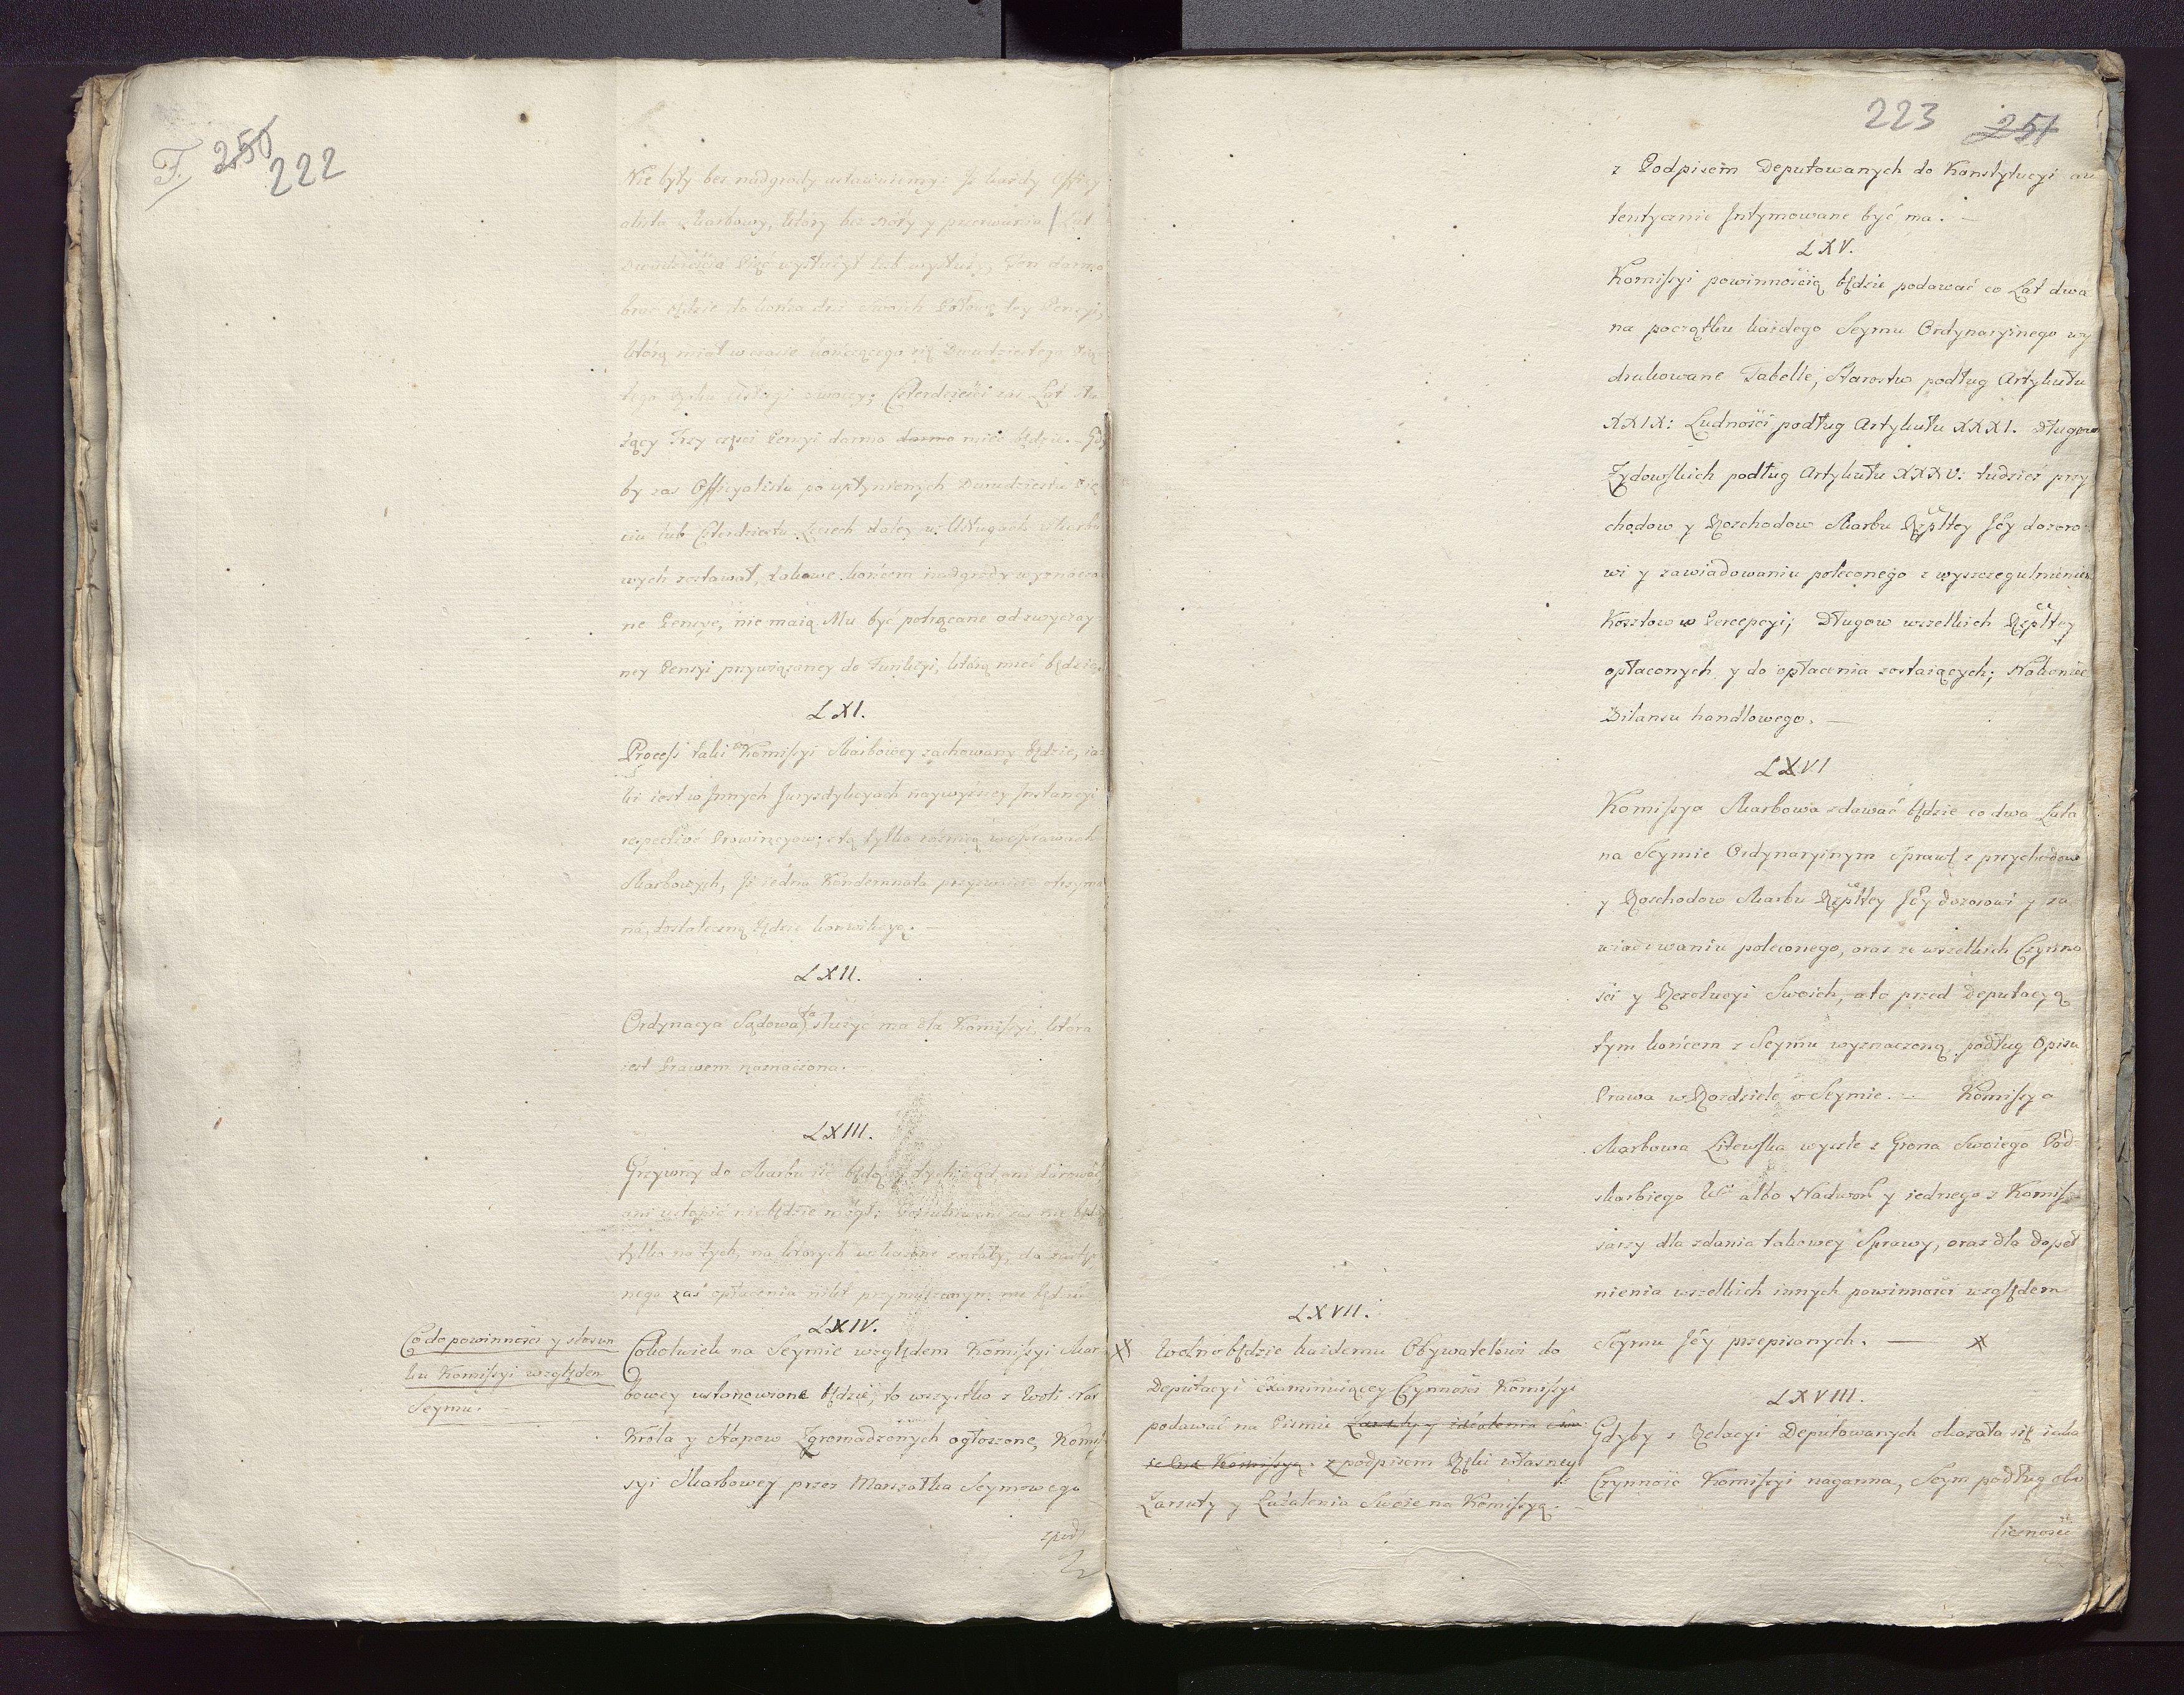 F. 250
222
Nie były bez nadgrody ustawiemy: Jż każdy Offícy
alista Skarbowy, który bez skary y przerwania Lat
Dwadzieścia Pięć wysłużył lub wysłuży, Ten darmo
brać będzie do końca dni Swoich Połowę tey Pensyi,
którą miał w czasie kończącego się Dwudziestego Pią
tego Roku Usługi swoiey; Czterdzieści zas Lat słu
żący Trzy części Pensyi darmo darmo mieć będzie. – Gdy
by zas Officyalista po upłynionych Dwudziestu Pię
ciu lub Czterdziestu Leciech daley w Usługach Skarbo
wych zostawał, takowe końcem nadgrody wyznaczo
ne Pensye, nie maią Mu być potrącane od zwyczay
ney Pensyi przywiązaney do Funkcyi, którą mieć będzie.
LXI.
Process taki w Komissyi Skarbowey zachowany będzie, ia
ki iest w Innych Jurysdykcyach naywyższey Instancyi
respective Prowincyow; z tą tylko rożnicą w sprawach
Skarbowych, Jż iedna Kondemnata przyzwoicie otrzyma
na, dostateczną będzie konwikcyą. –
LXII.
Ordynacya Sądowa ta służyć ma dla Komissyi, która
iest Prawem naznaczona. –
LXIII.
Grzywny do Skarbu iść będą y tych Sąd, ani darować
ani ustąpić nie będzie mógł: Poszukiwane zas nie będą
tylko na tych, na których wskazane zostały, do zastęp
nego zaś opłacenia nikt przymuszonym nie będzie
LXIV.
Co do powinności y stosun
ku Komissyi względem
Seymu. –
Cokolwiek na Seymie względem Komissyi Skar
bowey ustanowione będzie, to wszystko z Woli Nas
Króla y Stanow Zgromadzonych ogłoszone, Komis
syi Skarbowey przez Marszałka Seymowego
z pod
223 251
z Podpisem Deputowanych do Konstytucyi au
tentycznie Intymowane być ma. –
LXV.
Komissyi powinnością będzie podawać co Lat dwa
na początku każdego Seymu Ordynaryinego wy
drukowane Tabelle, Starostw podług Artykułu
XXIX: Ludności podług Artykułu XXXI. Długow
Żydowskich podług Artykułu XXXV: tudzież przy
chodow y Rozchodow Skarbu Rzpltey Jey dozoro
wi y zawiadowaniu poleconego z wyszczegulnieniem
Kosztow w Percepcyi; Długow wszelkich Rzpltey
opłaconych y do opłacenia zostaiących; Nakoniec
Bilansu handlowego. –
LXVI
Komissya Skarbowa zdawać będzie co dwa Lata
na Seymie Ordynaryinym sprawę z przychodow
y Rozchodow Skarbu Rzpltey Jey dozorowi y za
wiadowaniu poleconego, oraz ze wszelkich Czynno
ści y Rezolucyi Swoich, a to przed Deputacyą
tym końcem z Seymu wyznaczoną, podług Opisu
Prawa w Rozdziele o Seymie. – Komissya
Skarbowa Litewska wyszle z Grona Swoiego Pod
skarbiego W° albo Nadwor° y iednego z Komis
sarzy dla zdania takowey Sprawy, oraz dla dopeł
nienia wszelkich innych powinności względem
Seymu Jey przepisanych. – X
LXVII.
X Wolno będzie każdemu Obywatelowi do
Deputacyi Examinuiącey Czynności Komissyi
podawać na Piśmie Zarzuty y Użalenia swo
ie na Komissyą. z podpisem Ręki własney
Zarzuty y Użalenia Swoie na Komissyą. –
LXVIII.
Gdyby z Relacyi Deputowanych okazała się iaka
Czynność Komissyi naganna, Seym podług oko
liczności